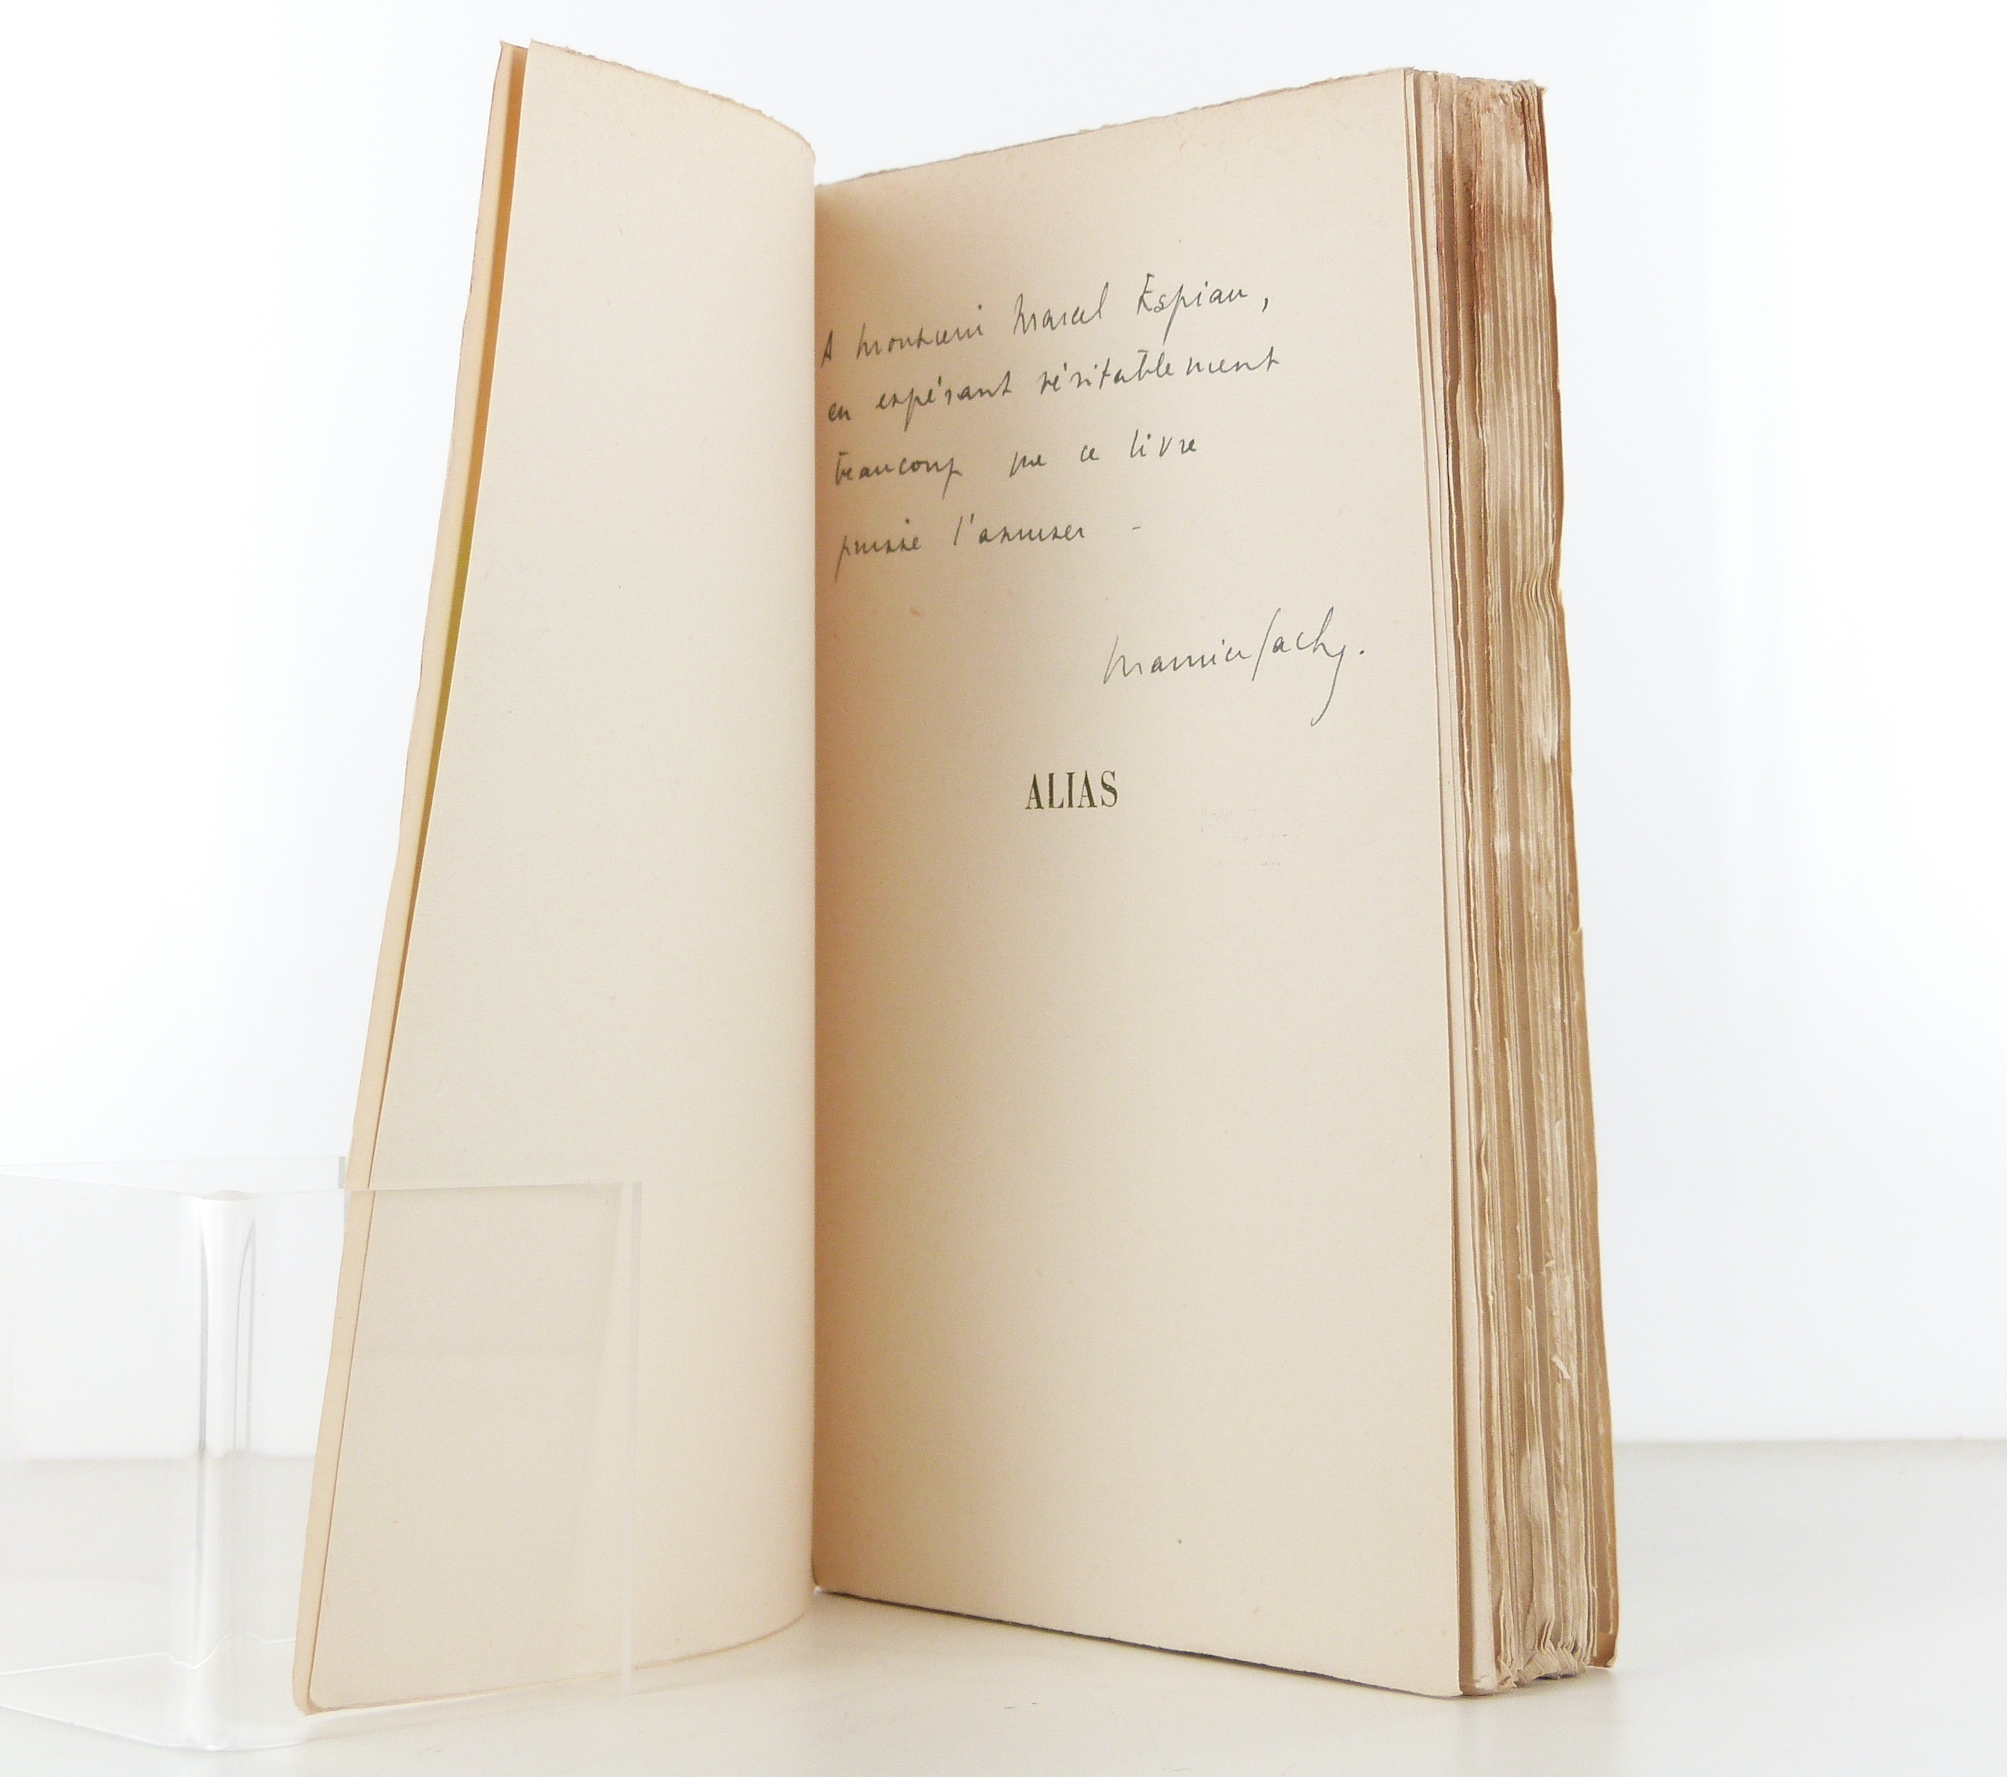 A Monsieur Marcel Espiau,
en espérant véritablement
beaucoup que ce livre
puisse l'amuser -
Maurice Sachs.
ALIAS